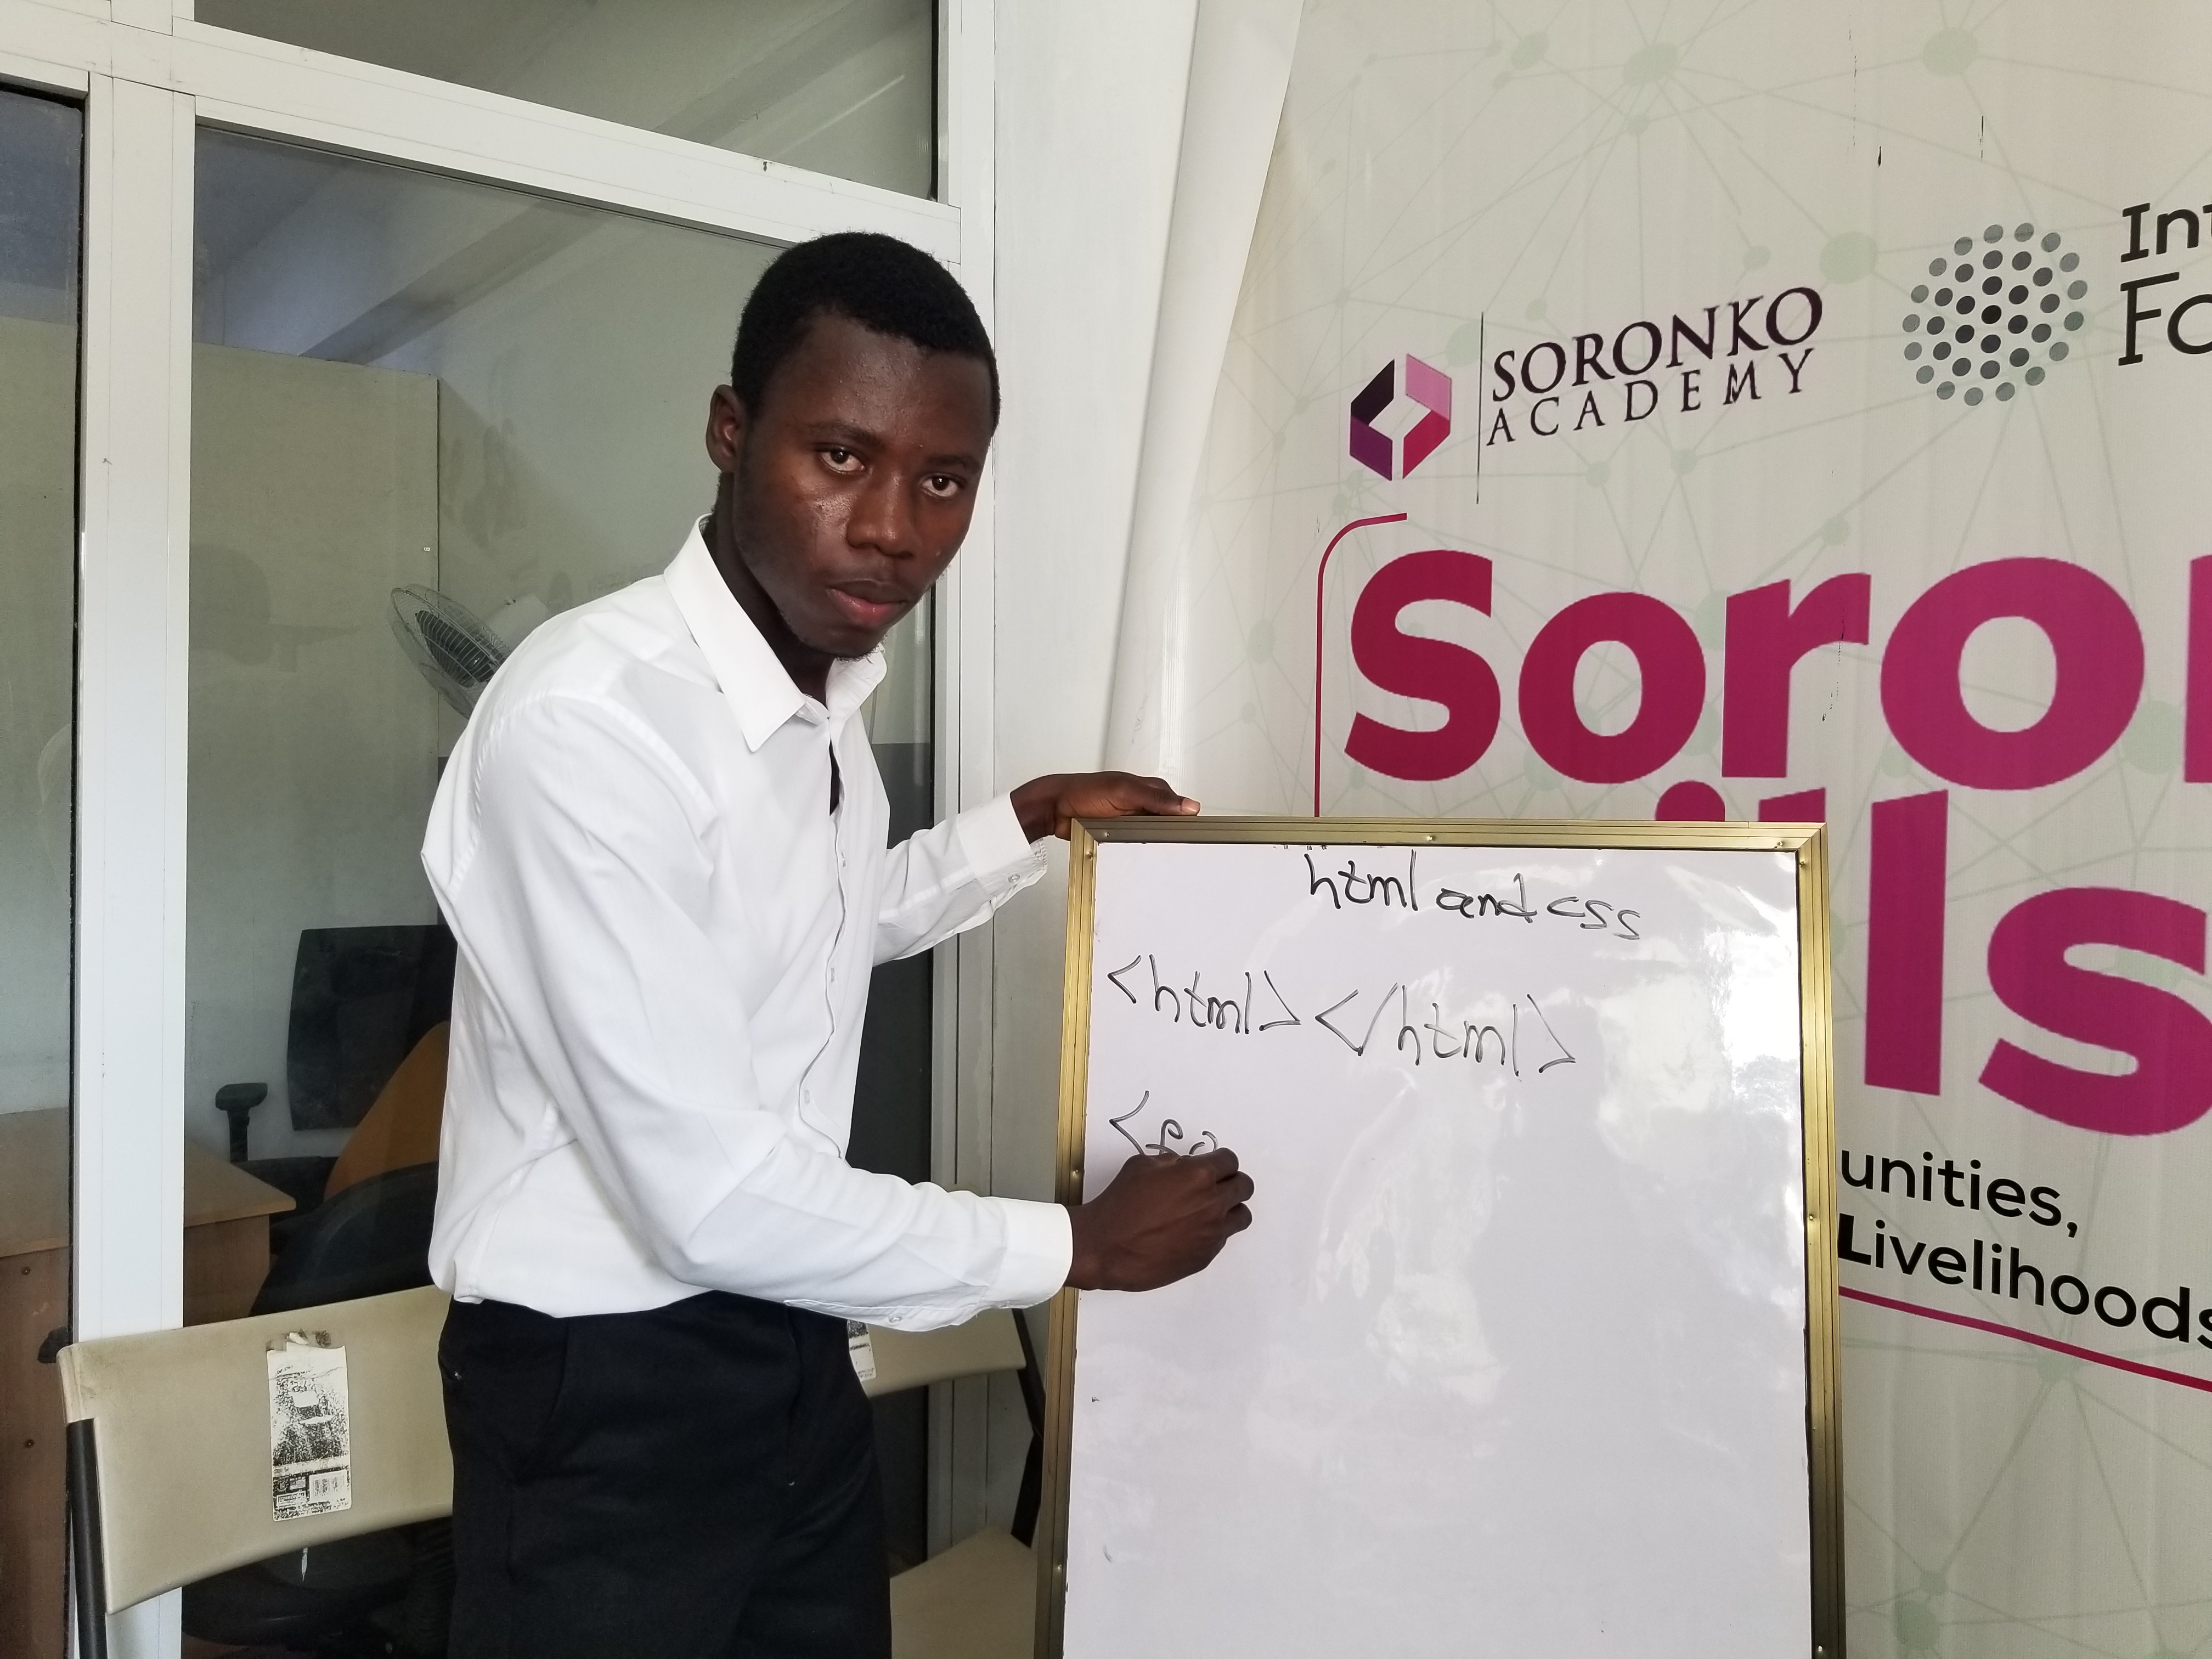 SORONKO
ACADEMY
Int
Fo
Soro
ls
unities,
Livelihoods
html and css
<html></html>
<fo